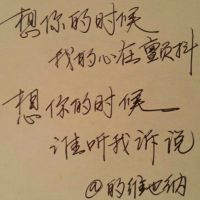 想你的时候
我的心在颤抖
想你的时候
谁听我诉说
@的维也纳